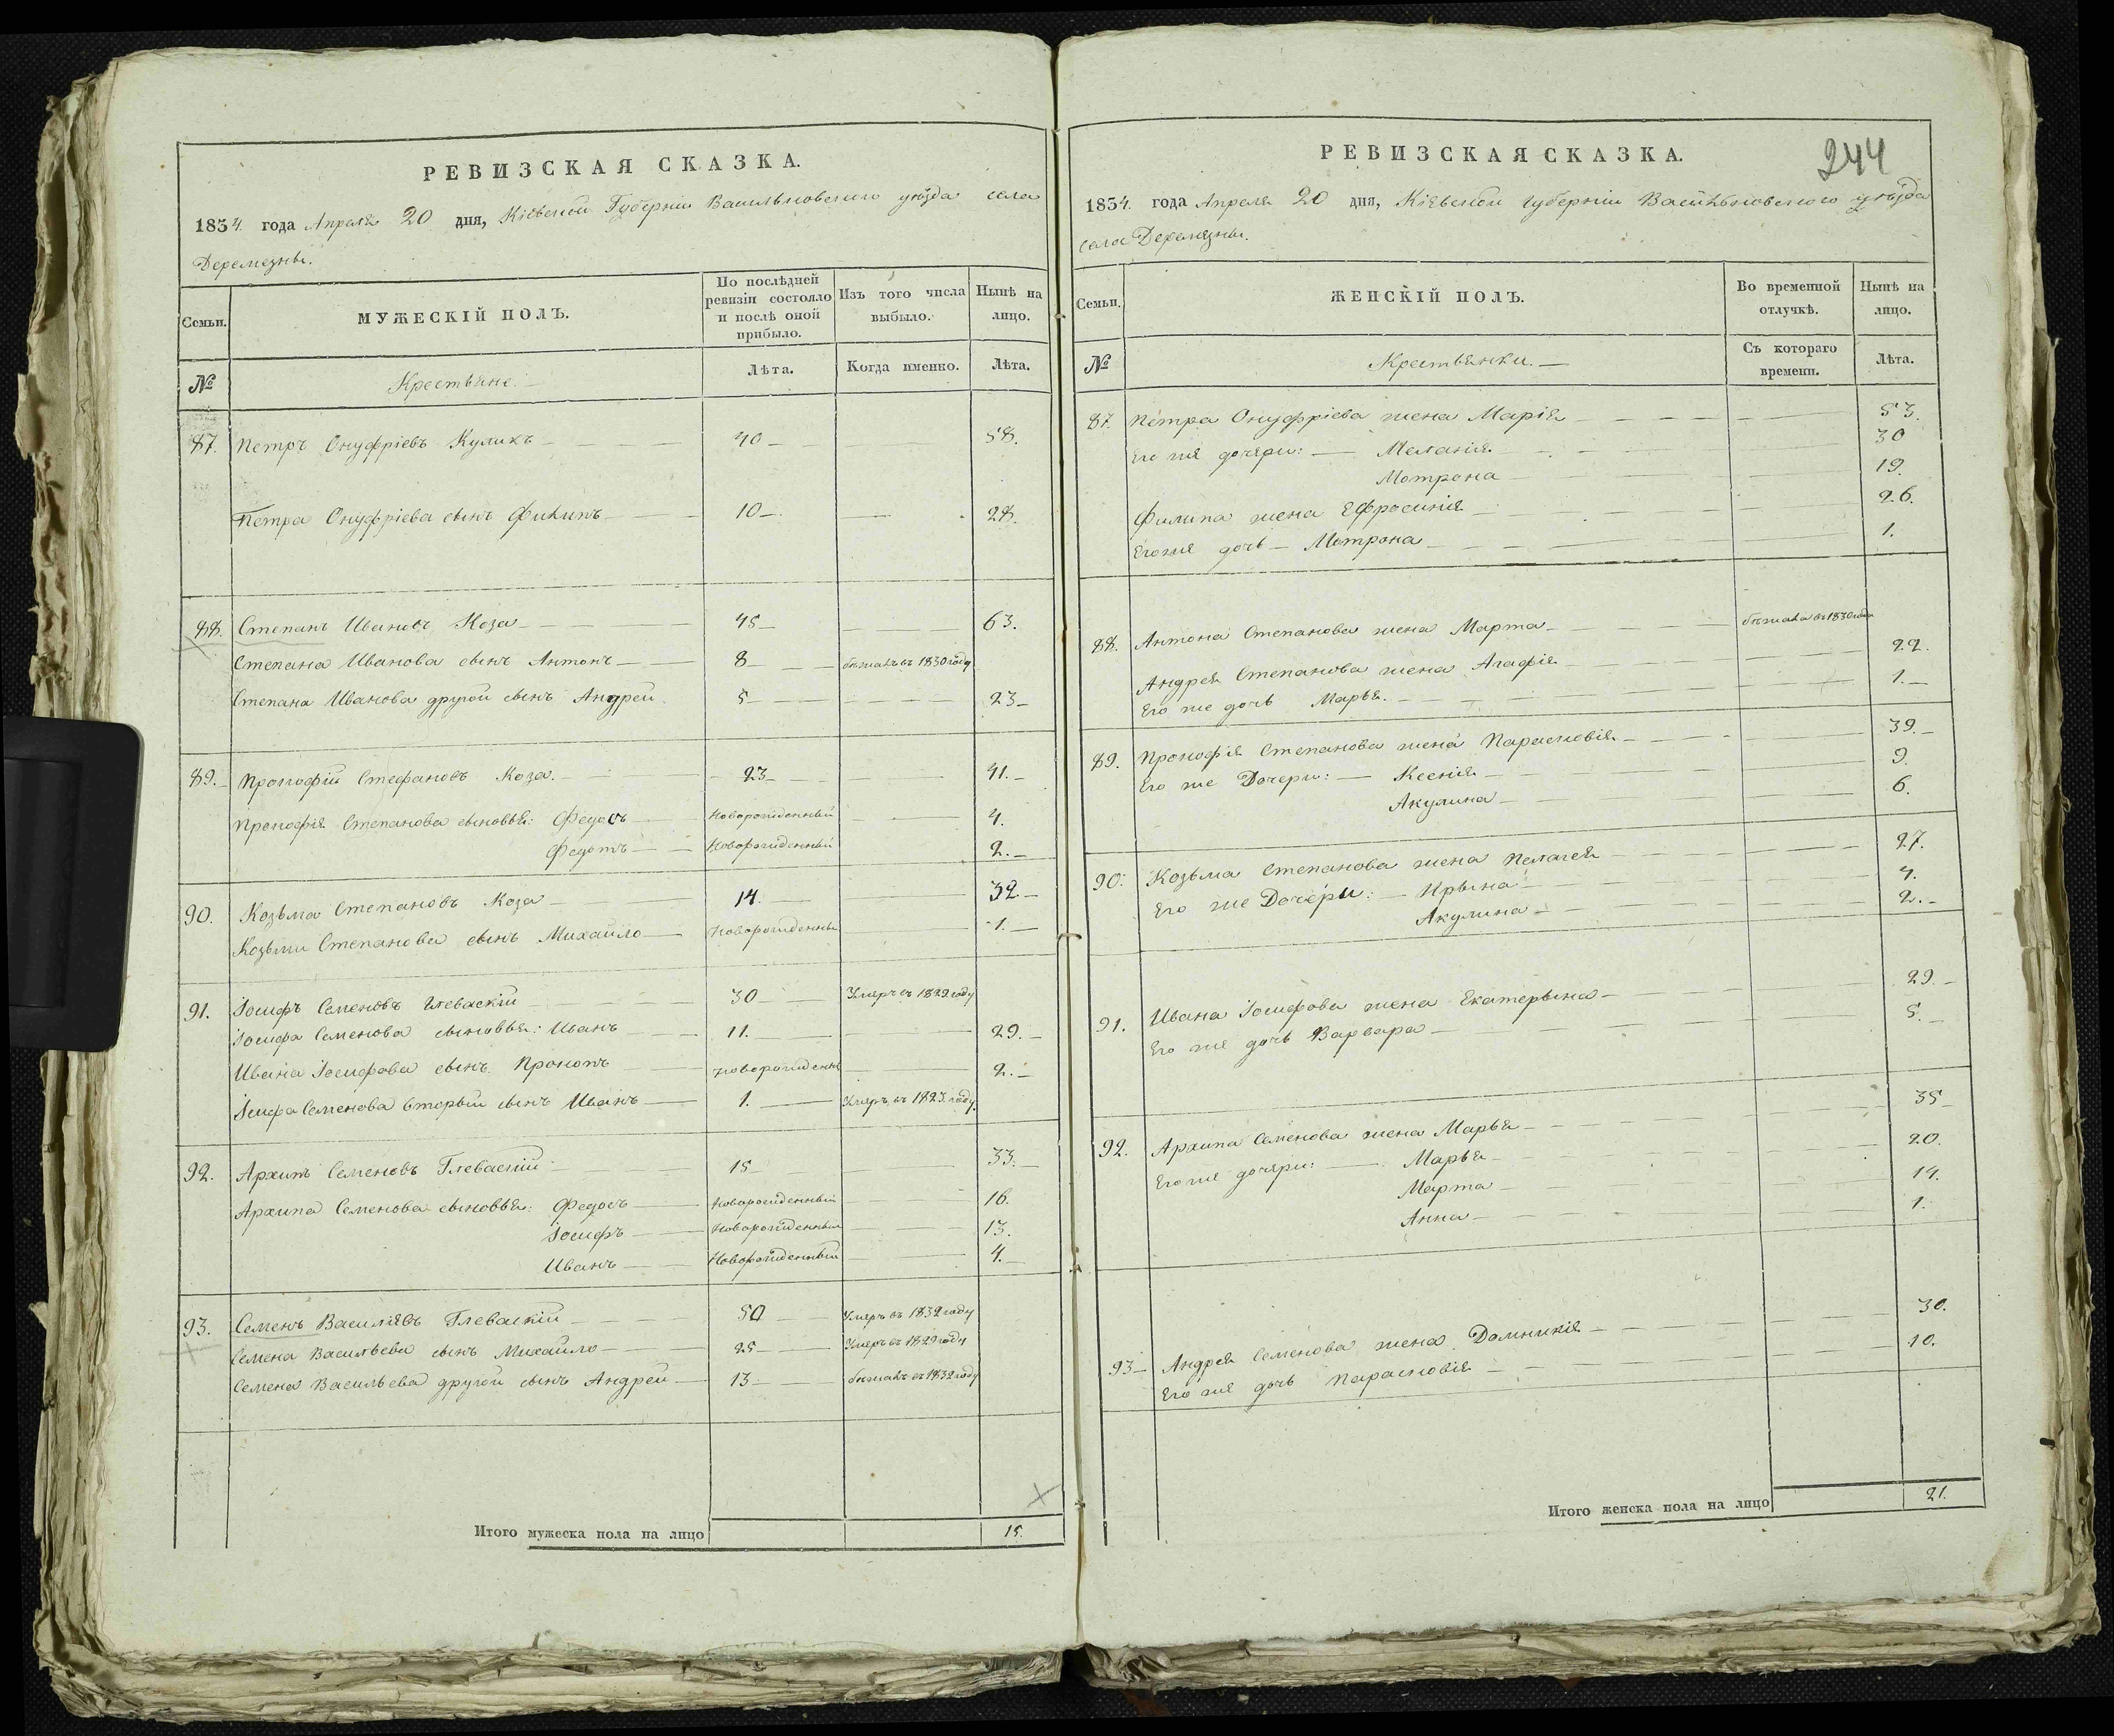 РЕВИЗСКАЯ СКАЗКА.
1834. года Апреля 20 дня, Кіевской Губерніи Васильковского уѣзда села
Деремезны.
Семьи.
МУЖЕСКІЙ ПОЛЪ.
По послѣдней ревизіи состояло и послѣ оной прибыло.
Изъ того числа выбыло.
Нынѣ на лицо.
№
Крестьяне.
Лѣта.
Когда именно.
Лѣта.
87. Петръ Онуфріевъ Куликъ 40 58.
Петра Онуфріева сынъ Филипъ 10 28.
88. Степанъ Ивановъ Коза 45 63.
Степана Иванова сынъ Антонъ 8 бѣжалъ въ 1830 году
Степана Иванова другой сынъ Андрей 5 23
89. Прокофій Стефановъ Коза. 23 41.
Прокофія Степанова сыновья: Федось Новорожденный 4.
Федотъ Новорожденный 2.
90. Козьма Степановъ Коза 14. 32
Козьми Степанова сынъ Михайло Новорожденны 1.
91. Іосифъ Семеновъ Глеваскій 30 Умеръ въ 1829 году
Іосифа Семенова сыновья: Иванъ 11. 29.
Ивана Іосифова сынъ Прокопъ новорожденны 2.
Іосифа Семенова вторый сынъ Иванъ 1. Умеръ въ 1823. году.
92. Архипъ Семеновъ Глеваскій 15 33.
Архипа Семенова сыновья: Федось Новорожденный 16.
Іосифъ Новорожденный 13.
Иванъ Новорожденный 4.
93. Семенъ Василіевъ Глеваскій 50 Умеръ въ 1832 году
Семена Васильева сынъ Михайло 25 Умеръ въ 1829 году
Семена Васильева другой сынъ Андрей 13 бѣжалъ въ 1832 году
Итого мужеска пола на лицо 15.
244
РЕВИЗСКАЯ СКАЗКА.
1834. года Апреля 20 дня, Кіевской губерніи Васильковского уѣзда
села Деремезны.
Семьи.
ЖЕНСКІЙ ПОЛЪ.
Во временной отлучкѣ.
Нынѣ на лицо.
№
Крестьянки.
Съ котораго времени.
Лѣта.
87. Петра Онуфріева жена Марія 53.
Его же дочери: Меланія 30
Мотрона 19.
Филипа жена Ефросинія 26.
Его же дочь Мотрона 1.
88. Антона Степанова жена Марта бѣжала въ 1830 года
Андрея Степанова жена Агафія 22.
Его же дочь Марья. 1.
89. Прокофія Степанова жена Парасковія 39.
Его же Дочери: Ксенія 9.
Акулина 6.
90. Козьма Степанова жена Пелагея 27.
Его же Дочери: Ирына 4.
Акулина 2.
91. Ивана Іосифова жена Екатерына 29.
Его же дочь Варвара 5.
92. Архипа Семенова жена Марья 35
Его же дочери: Марья 20.
Марта 14.
Анна 1.
93 Андрея Семенова жена Домникія 30.
Его же дочь Парасковія 10.
Итого женска пола на лицо 21.